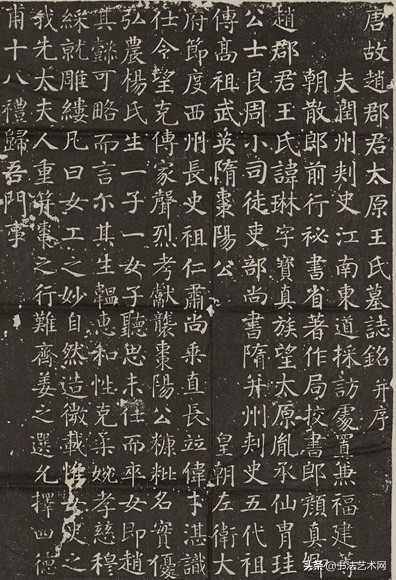 唐故趙郡君太原王氏墓誌銘 并序
夫潤州刾史江南東道採訪處置兼福建
朝散郎前行祕書省著作局校書郎顏真卿
趙郡君王氏諱琳字寶真族望太原胤承仙胄珪
公士良周小司徒吏部尚書隋并州刾史五代祖
傳高祖武英隋棗陽公 皇朝左衛大
府節度西州長史祖仁肅尚乘直長竝偉才湛識
仕令望克傳家聲烈考獻襲棗陽公糠粃名實優
弘農楊氏生一子一女子聽思未仕而卒女即趙
其繇可略而言尒其生韞恵和性克柔婉孝慈穆
綵就雕縷凡曰女工之妙自然造微載惟女史之
我先太夫人重笄棗之行難齊姜之選允擇四德
甫十八禮歸吾門事
头条 @书法艺术网